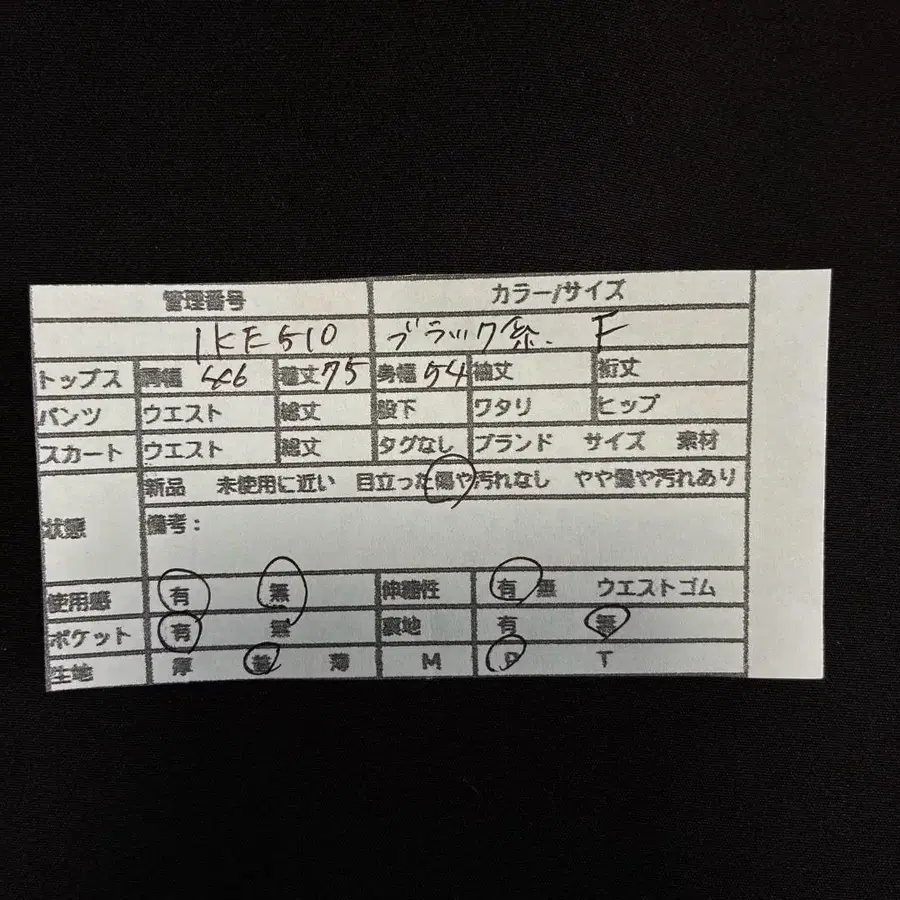 管理番号 カラー/サイズ
IKE510 ブラック系. F
トップス 肩幅 46 着丈 75 身幅 54 袖丈 裄丈
パンツ ウエスト 総丈 股下 ワタリ ヒップ
スカート ウエスト 総丈 タグなし ブランド サイズ 素材
新品 未使用に近い 目立った傷や汚れなし やや傷や汚れあり
状態 備考：
使用感 有 無 伸縮性 有 無 ウエストゴム
ポケット 有 無 裏地 有 無
生地 厚 普 薄 M P T